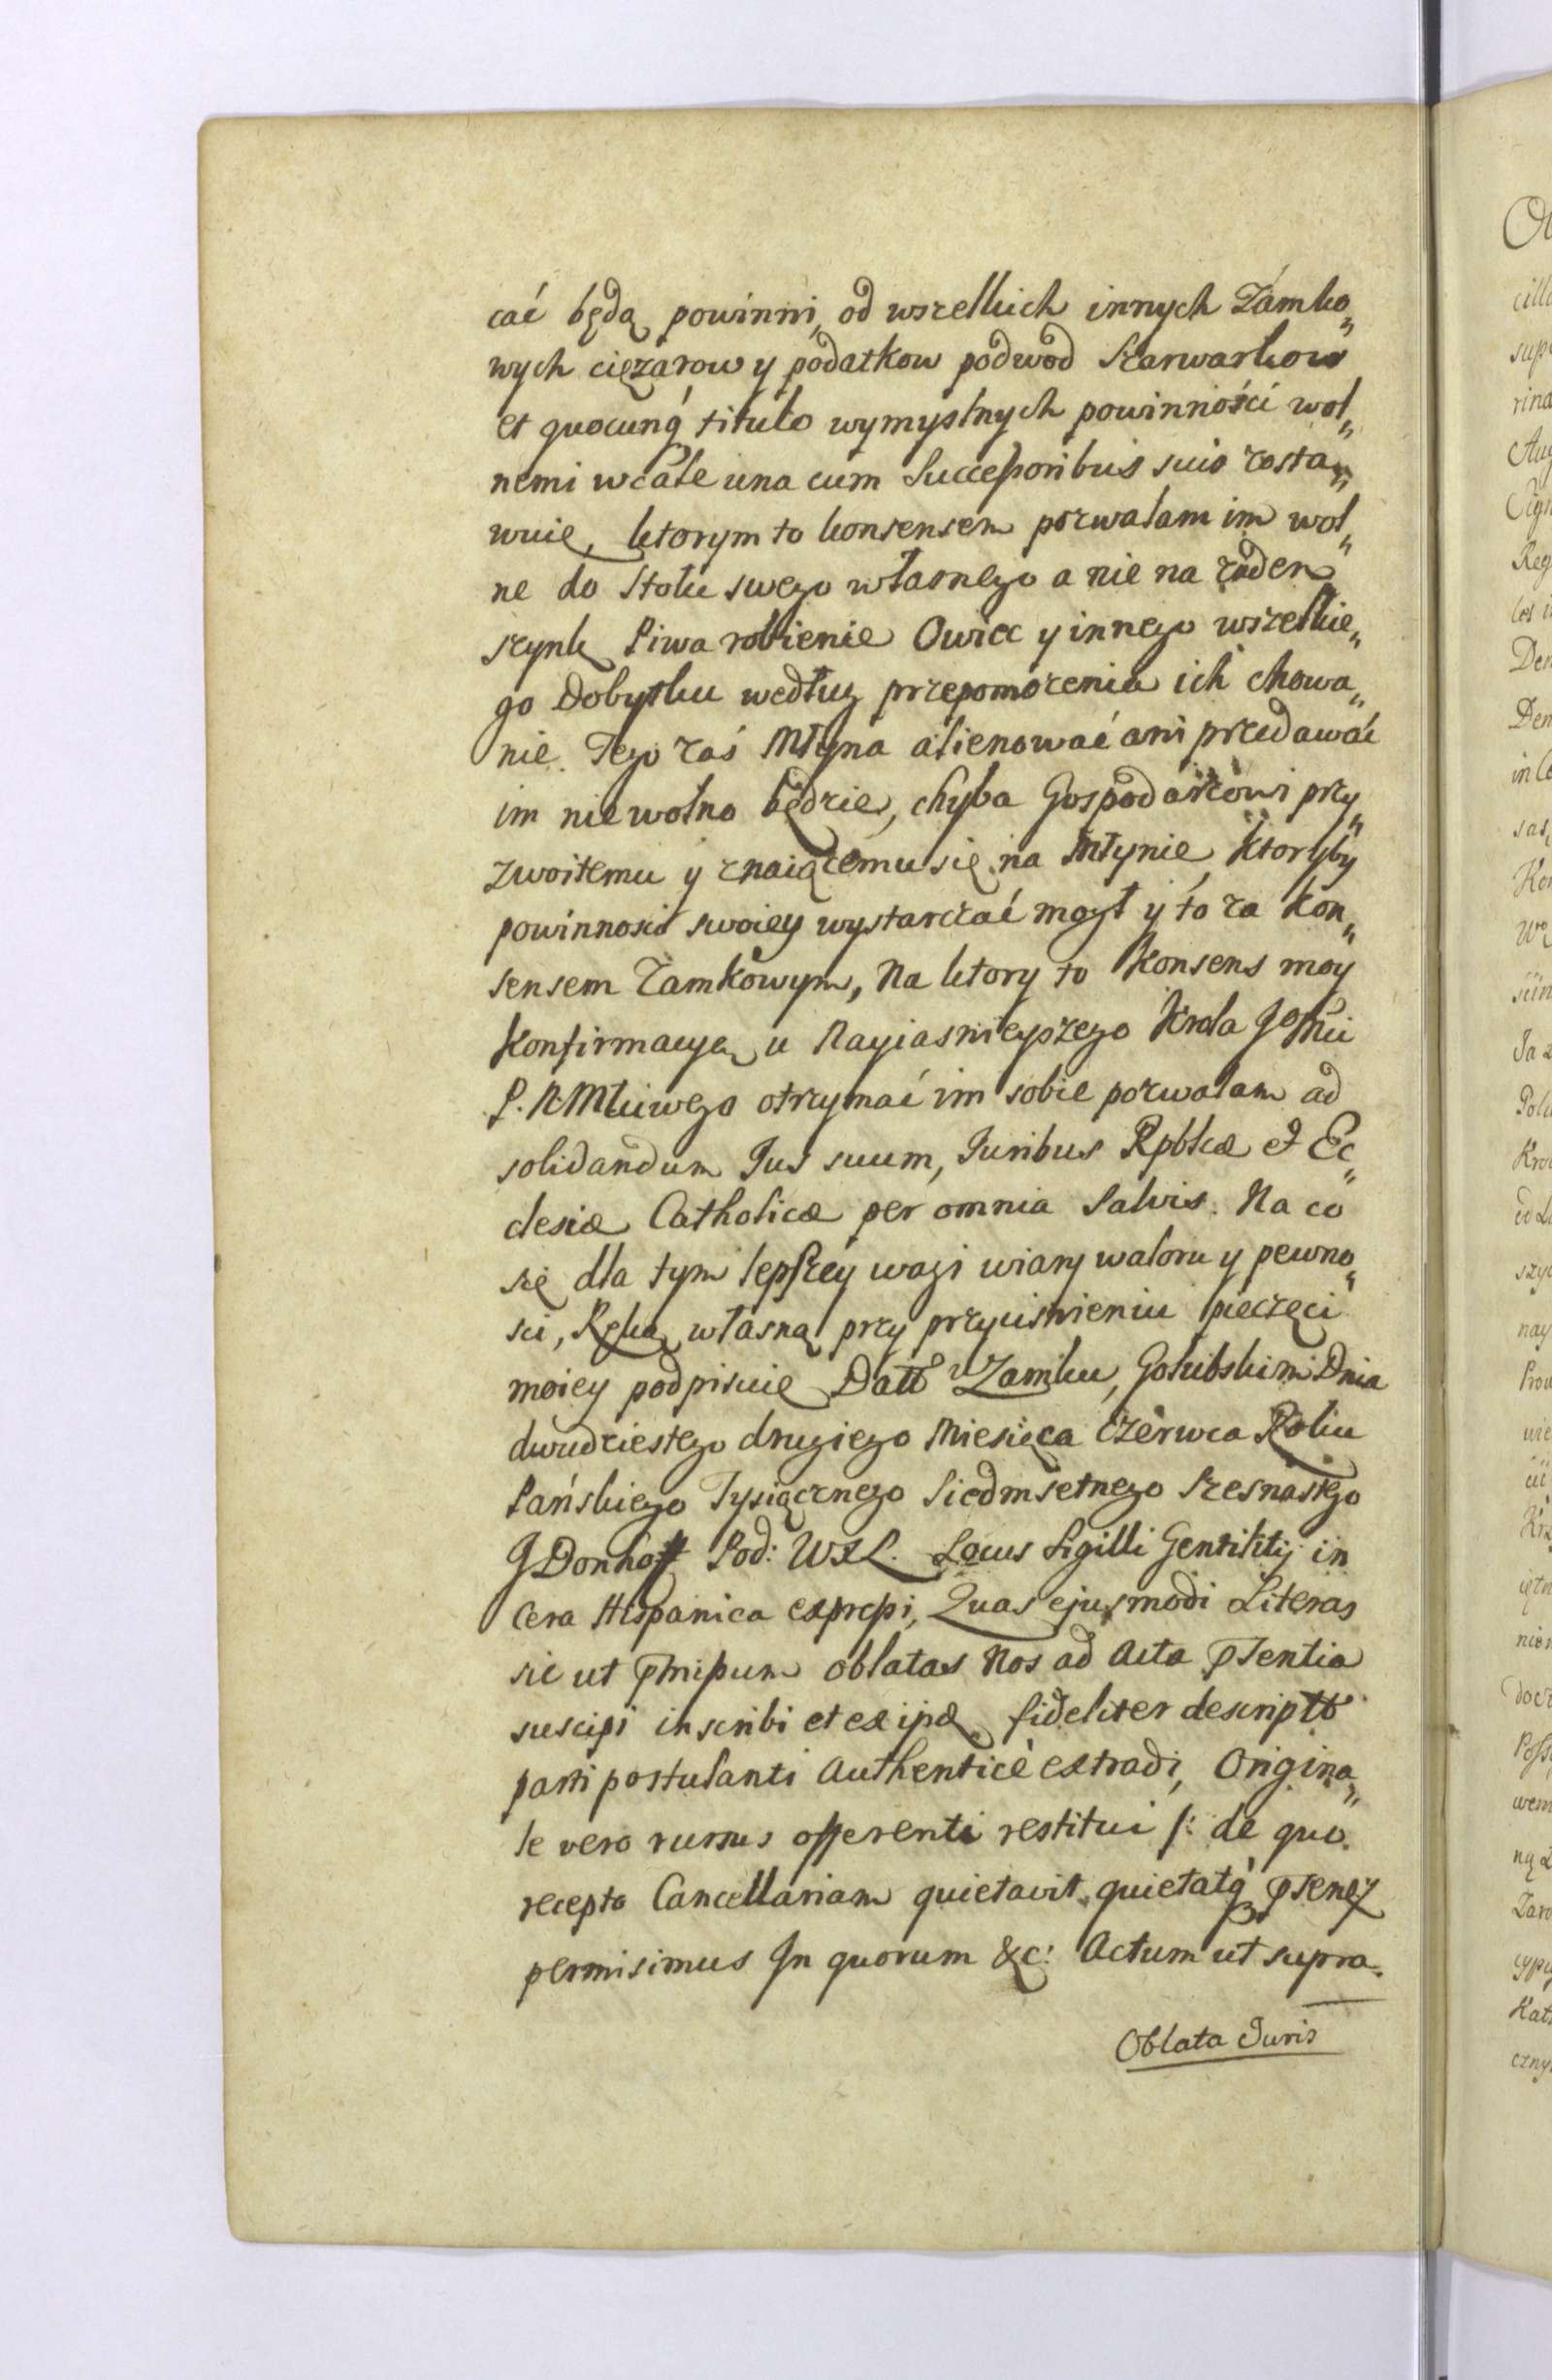 cać będą powinni, od wszelkich innych Zamko„
wych ciężarow y podatkow podwod Szarwarkow
et quocunq́ titulo wymyslnych powinności wol„
nemi wcale una cum Successoribus suis zosta„
wuię, ktorym to konsensem pozwalam im wol„
ne do Stołu swego własnego a nie na żaden
szynk Piwa robienie Owiec y innego wszelkie„
go Dobytku według przepomożenia ich chowa„
nie. Tego zaś Młyna alienować ani przedawać
im nie wolno będzie, chyba Gospodarzowi przy„
zwoitemu y znaiącemu się na Młynie, ktoryby
powinności swoiey wystarczać mogł y to za kon„
sensem Zamkowym, Na ktory to Konsens moy
Konfirmacyą u Nayiasnieyszego Krola JoMci
P. N Mściwego otrzymać im sobie pozwalam ad
solidandum Jus suum, Juribus Rpblcæ et Ec„
clesiæ Catholicæ per omnia Salvis. Na co
się dla tym lepszey wagi wiary waloru y pewno„
sci, Ręką własną przy przycisnieniu pieczęci
moiey podpisuię Datt w Zamku, Golubskim Dnia
dwudziestego drugiego Miesiąca Czerwca Roku
Pańskiego Tysiącznego Siedmsetnego Szesnastego
J Donhoff Pod: WXL. Locus Sigilli Gentilitij in
Cera Hispanica expressi, Quas ejusmodi Literas
sic ut oblatas Nos ad Acta
suscipi inscribi et ex ipsæ fideliter descriptt
parti postulanti Authenticè extradi, Origina„
le vero rursus offerenti restitui /: de quo
recepto Cancellariam quietavit quietatq́
permisimus In quorum &c: Actum ut supra.
Oblata Juris